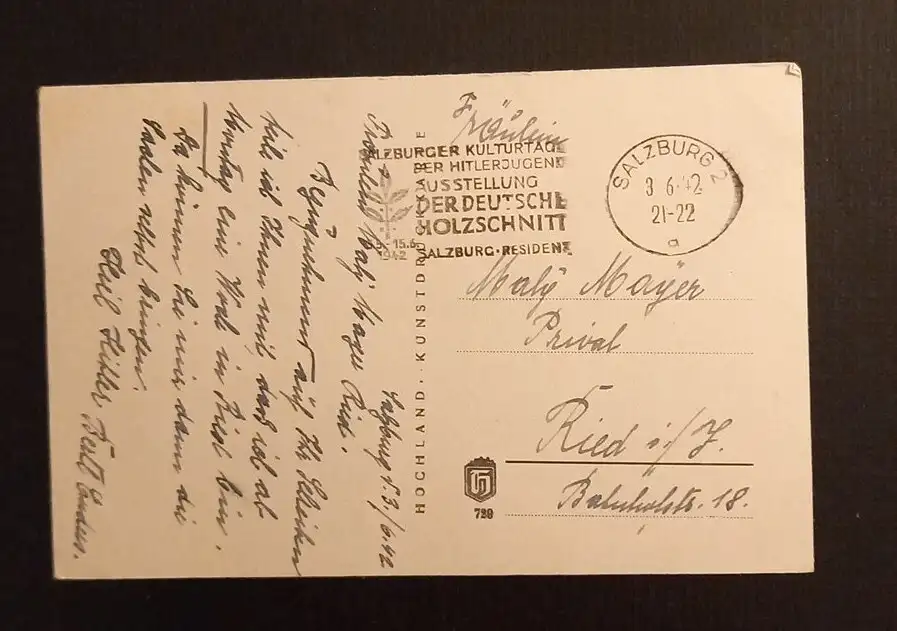 Salzburg, d. 3./6.42
Fräulein Maly Mayer Ried.
Bezugnehmend auf Ihr Schreiben
teile ich Ihnen mit, daß ich ab
Montag eine Woche in Ried bin.
Da können Sie mir dann die
Sachen selbst bringen.
Heil Hitler
HOCHLAND - KUNSTDRUCKKARTE
SALZBURGER KULTURTAGE
DER HITLERJUGEND
AUSSTELLUNG
DER DEUTSCHE
HOLZSCHNITT
15.6.
1942 SALZBURG-RESIDENZ
SALZBURG 2
3 6.42
21-22
a
Fräulein
Maly Mayer
Privat
Ried i/J.
Bahnhofstr. 18.
729